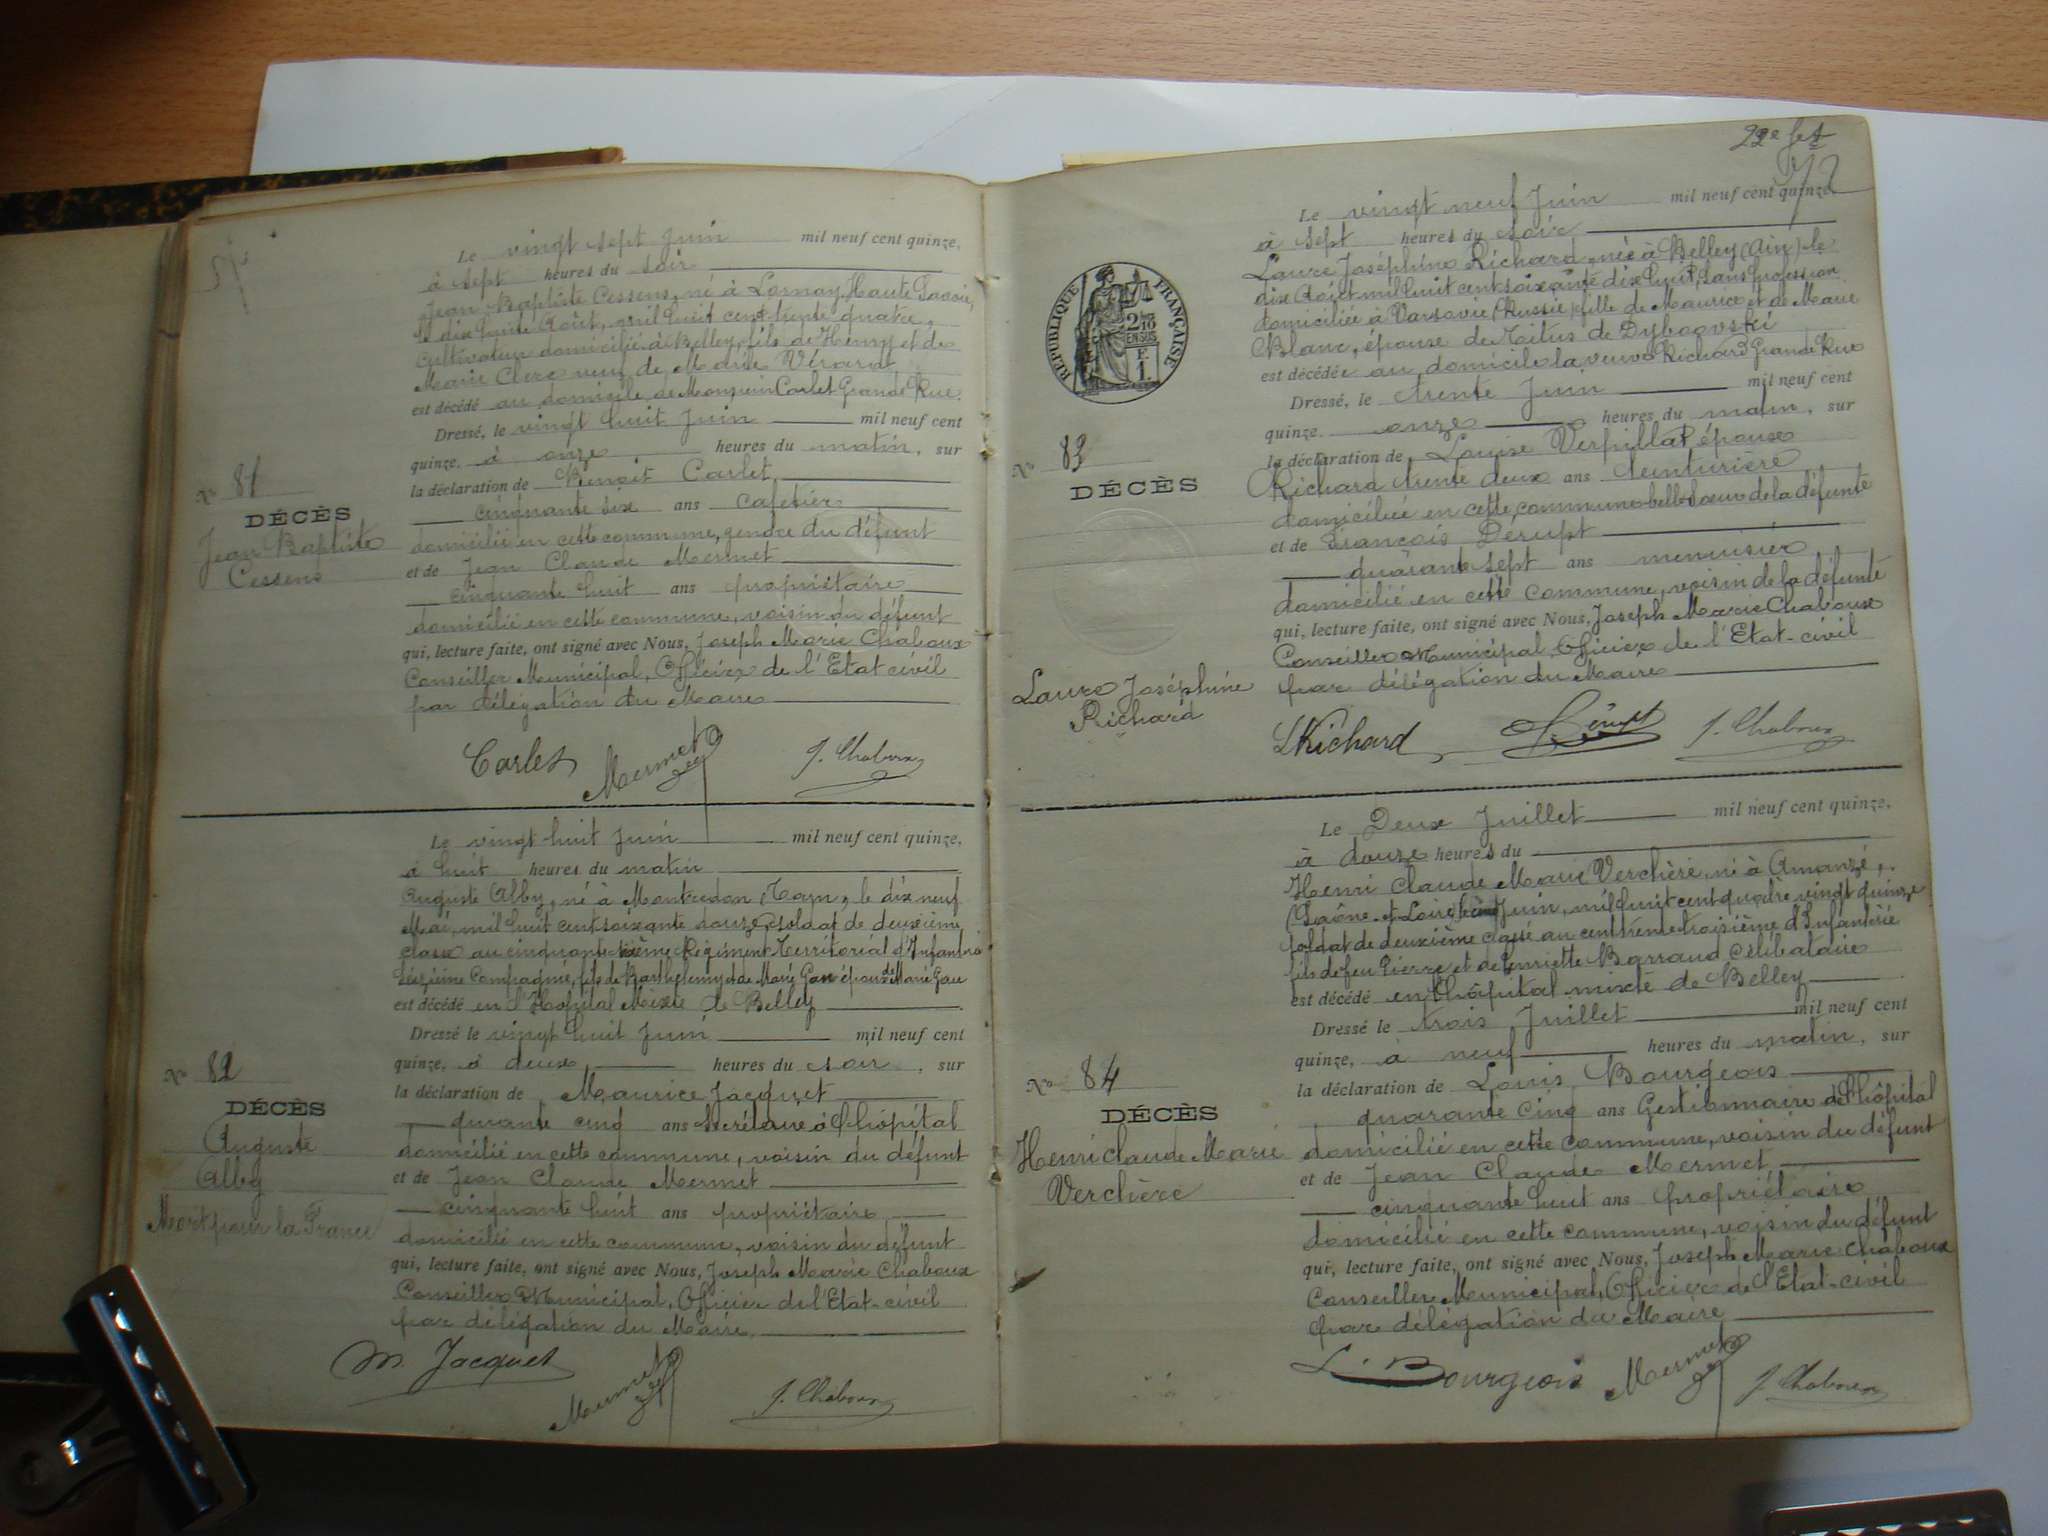 Le vingt sept Juin mil neuf cent quinze,
à sept heures du soir
Jean Baptiste Cessens, né à Lornay, Haute Savoie,
le dix huit Août, mil huit cent trente quatre,
Cultivateur domicilié à Belley, fils de Henry et de
Marie Clerc veuf de Marie Vérard
est décédé au domicile de Monsieur Carlet Grande Rue.
Dressé, le vingt huit Juin mil neuf cent
quinze, à onze heures du matin, sur
la déclaration de Benoit Carlet
cinquante six ans cafetier
domicilié en cette commune, gendre du défunt
et de Jean Claude Mermet
cinquante huit ans propriétaire
domicilié en cette commune, voisin du défunt
qui, lecture faite, ont signé avec Nous, Joseph Marie Chaboux
Conseiller Municipal, Officier de l'Etat civil
par délégation du Maire
No 81
DÉCÈS
Jean Baptiste
Cessens
Carlet Mermet J. Chaboux
Le vingt huit Juin mil neuf cent quinze,
à huit heures du matin
Auguste Alby, né à Montredon, Tarn, le dix neuf
Mai, mil huit cent soixante douze, soldat de deuxième
classe au cinquante sixième Régiment Territorial d'Infanterie
Seizième Compagnie, fils de Barthélemy et de Marie Gau époux de Marie Gau
est décédé en l'Hôpital Mixte de Belley
Dressé le vingt huit Juin mil neuf cent
quinze, à deux heures du soir, sur
la déclaration de Maurice Jacquet
quarante cinq ans Secrétaire à l'hôpital
domicilié en cette commune, voisin du défunt
et de Jean Claude Mermet
cinquante huit ans propriétaire
domicilié en cette commune, voisin du défunt
qui, lecture faite, ont signé avec Nous, Joseph Marie Chaboux
Conseiller Municipal, Officier de l'Etat-civil
par délégation du Maire.
No 82
DÉCÈS
Auguste
Alby
Mort pour la France
M. Jacquet Mermet J. Chaboux
22e
Le vingt neuf Juin mil neuf cent quinze,
à sept heures du soir
Laure Joséphine Richard, née à Belley (Ain) le
dix Août mil huit cent soixante dix huit, sans profession
domiciliée à Varsovie (Russie) fille de Maurice et de Marie
Blanc, épouse de Titus de Dybowski
est décédée au domicile la veuve Richard Grande Rue
Dressé, le trente Juin mil neuf cent
quinze. onze heures du matin, sur
la déclaration de Louise Verpillat épouse
Richard trente deux ans teinturière
domiciliée en cette commune belle soeur de la défunte
et de François Dérupt
quarante sept ans menuisier
domicilié en cette commune, voisin de la défunte
qui, lecture faite, ont signé avec Nous, Joseph Marie Chaboux
Conseiller Municipal, Officier de l'Etat-civil
par délégation du Maire
RÉPUBLIQUE FRANÇAISE
2/10
EN SUS
F.
1
No 83
DÉCÈS
Laure Joséphine
Richard
L Richard J. Chaboux
Le Deux Juillet mil neuf cent quinze,
à douze heures du
Henri Claude Marie Verchère, né à Amanzé,
(Saône-et-Loire) Juin, mil huit cent quatre vingt quinze
soldat de deuxième classé au cent trente troisième d'Infanterie
fils de feu Pierre et de Henriette Barraud Célibataire
est décédé en l'hôpital mixte de Belley
Dressé le trois Juillet mil neuf cent
quinze, à neuf heures du matin, sur
la déclaration de Louis Bourgeois
quarante cinq ans Gestionnaire de l'hôpital
domicilié en cette commune, voisin du défunt
et de Jean Claude Mermet
cinquante huit ans propriétaire
domicilié en cette commune, voisin du défunt
qui, lecture faite, ont signé avec Nous, Joseph Marie Chaboux
Conseiller Municipal, Officier de l'Etat-civil
par délégation du Maire
No 84
DÉCÈS
Henri Claude Marie
Verchère
L. Bourgeois Mermet J. Chaboux